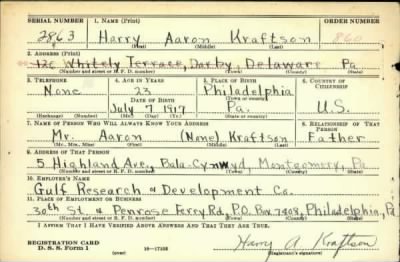 SERIAL NUMBER 1. NAME (Print) ORDER NUMBER
2863 Harry Aaron Kraftson 860
(First) (Middle) (Last)
2. ADDRESS (Print)
126 Whitely Terrace, Darby, Delaware Pa
(Number and street or R. F. D. number) (Town) (County) (State)
3. TELEPHONE 4. AGE IN YEARS 5. PLACE OF BIRTH 6. COUNTRY OF CITIZENSHIP
None 23 Philadelphia
DATE OF BIRTH (Town or county)
July 7 1917 Pa. U.S.
(Exchange) (Number) (Mo.) (Day) (Yr.) (State or country)
7. NAME OF PERSON WHO WILL ALWAYS KNOW YOUR ADDRESS 8. RELATIONSHIP OF THAT PERSON
Mr. Aaron (None) Kraftson Father
(Mr., Mrs., Miss) (First) (Middle) (Last)
9. ADDRESS OF THAT PERSON
5 Highland Ave., Bala-Cynwyd, Montgomery, Pa
(Number and street or R. F. D. number) (Town) (County) (State)
10. EMPLOYER'S NAME
Gulf Research & Development Co.
11. PLACE OF EMPLOYMENT OR BUSINESS
30th St & Penrose Ferry Rd, P.O. Box 7408, Philadelphia, Pa
(Number and street or R. F. D. number) (Town) (County) (State)
I AFFIRM THAT I HAVE VERIFIED ABOVE ANSWERS AND THAT THEY ARE TRUE.
REGISTRATION CARD
D. S. S. Form 1 (over) Harry A. Kraftson